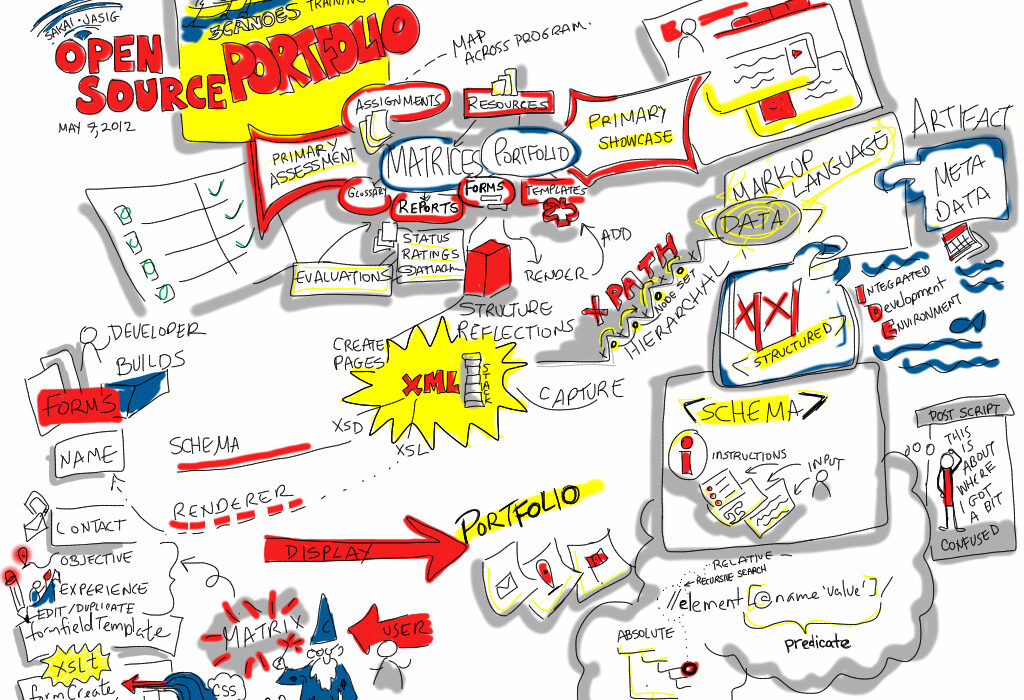 SAKAI · JASIG
BEANOES TRAINING
OPEN
SOURCE
PORTFOLIO
MAY 9, 2012
MAP
ACROSS PROGRAM.
ASSIGNMENTS
RESOURCES
PRIMARY
ASSESSMENT
MATRICES
PORTFOLIO
PRIMARY
SHOWCASE
GLOSSARY
REPORTS
FORMS
TEMPLATES
EVALUATIONS
STATUS
RATINGS
RENDER
ADD
STRUCTURE
REFLECTIONS
X PATH
NODE SET
HIERARCHAL
MARKUP
LANGUAGE
DATA
ARTIFACT
META
DATA
INTEGRATED
DEVELOPMENT
ENVIRONMENT
X|X|
STRUCTURED
DEVELOPER
BUILDS
FORMS
NAME
CONTACT
OBJECTIVE
EXPERIENCE
EDIT/DUPLICATE
formfieldTemplate
XSLt
formCreate
CREATE
PAGES
XML
STACK
CAPTURE
XSD
XSL
SCHEMA
RENDERER
DISPLAY
PORTFOLIO
MATRIX
USER
CSS
<SCHEMA>
i INSTRUCTIONS
INPUT
POST SCRIPT
THIS
IS
ABOUT
WHERE
I GOT
A BIT
CONFUSED
RELATIVE
RECURSIVE SEARCH
//element[@name='value']/
predicate
ABSOLUTE